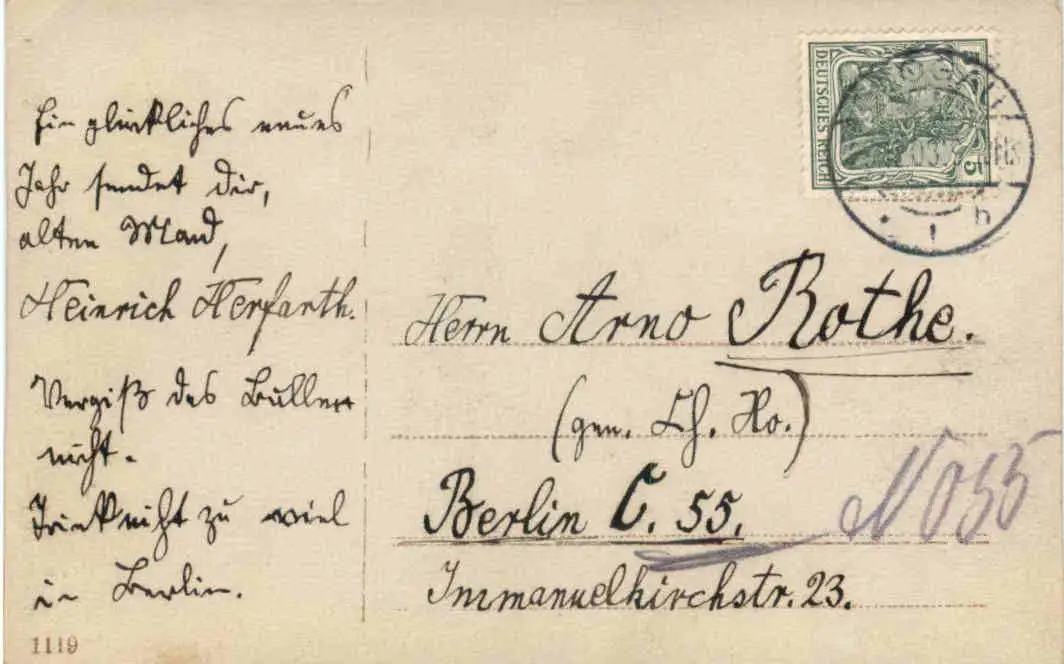 Ein glückliches neues
Jahr sendet dir,
alten
Heinrich Herfarth.
Vergiß das
nicht.
Trink nicht zu viel
in Berlin.
1119
DEUTSCHES REICH
5
Herrn Arno Rothe.
(gen. Ho.)
Berlin C. 55.
NO 55
Immanuelkirchstr. 23.